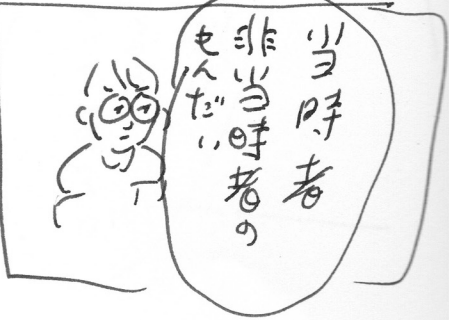 当時者
非当時者の
もんだい